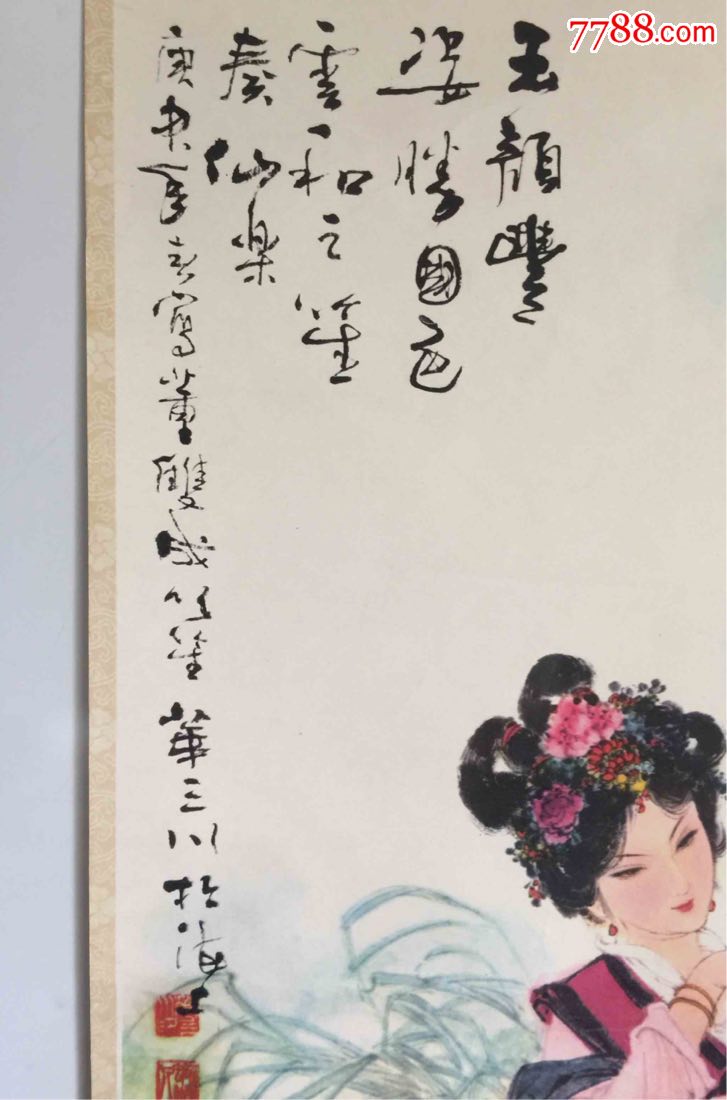 7788.com
玉顔豐
姿勝國色
雲和之笙
奏仙樂
庚申年春寫董雙成吹笙華三川於海上